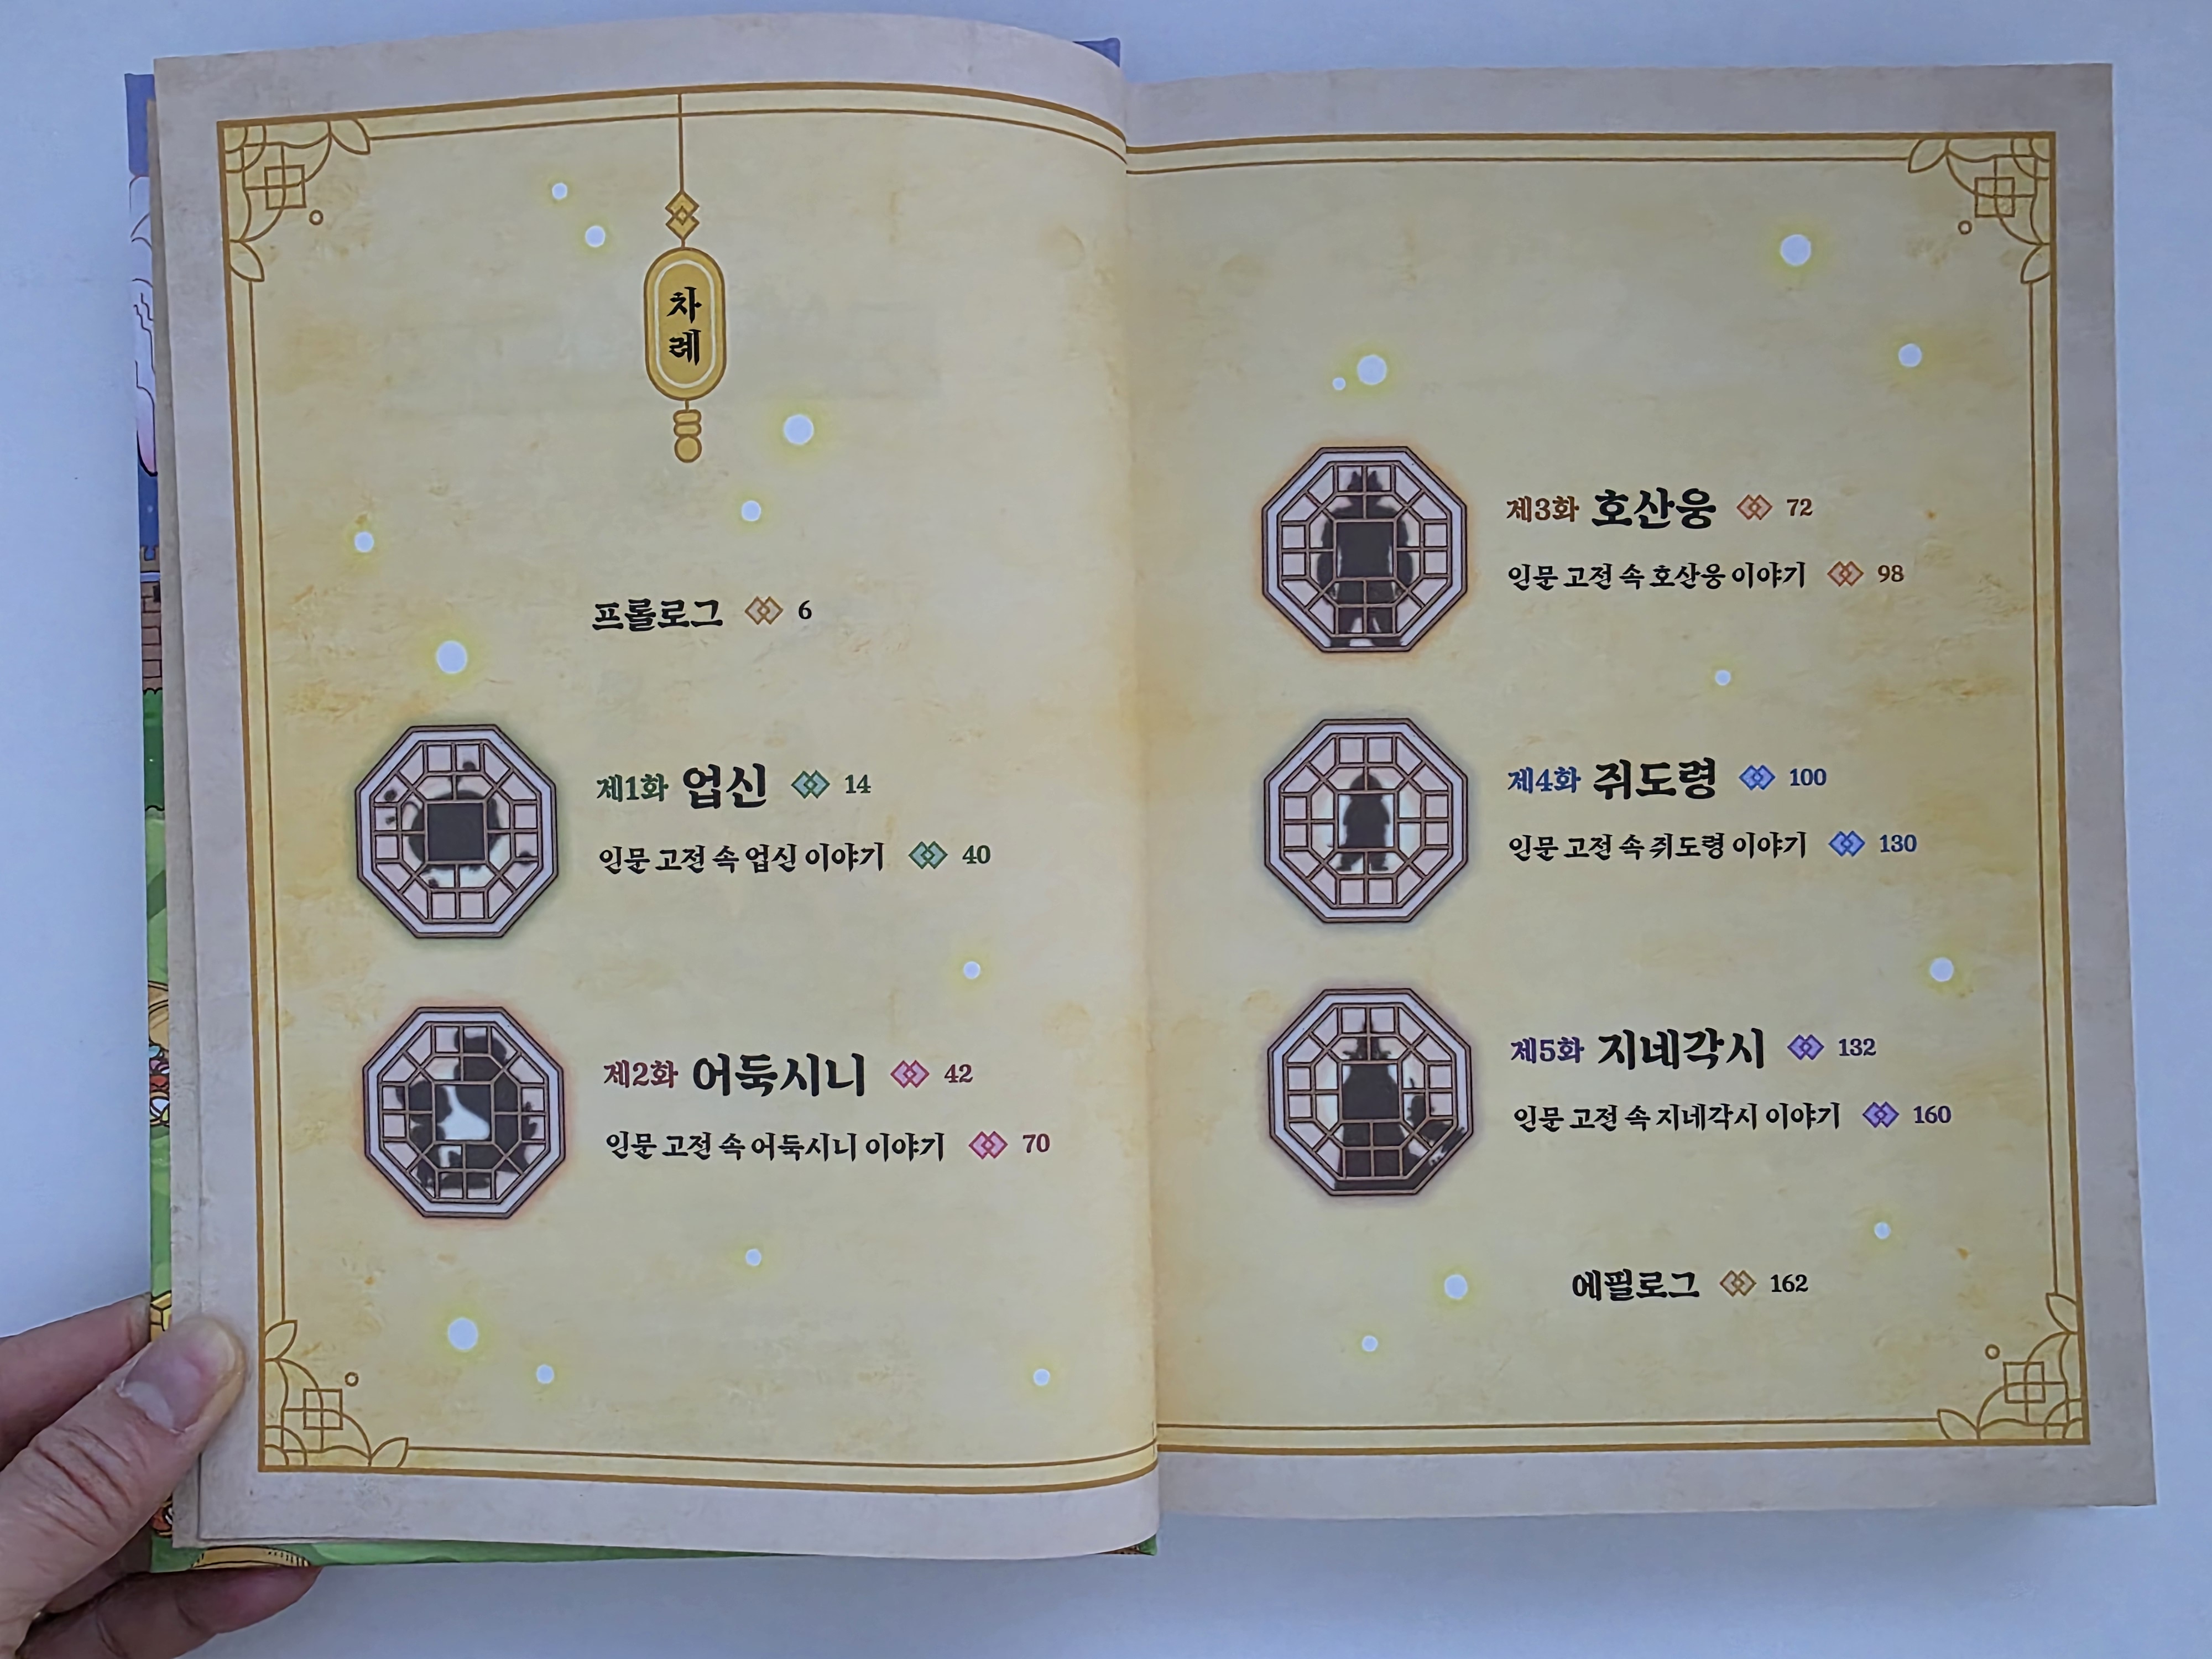 차례
프롤로그 6
제1화 업신 14
인문 고전 속 업신 이야기 40
제2화 어둑시니 42
인문 고전 속 어둑시니 이야기 70
제3화 호산웅 72
인문 고전 속 호산웅 이야기 98
제4화 쥐도령 100
인문 고전 속 쥐도령 이야기 130
제5화 지네각시 132
인문 고전 속 지네각시 이야기 160
에필로그 162